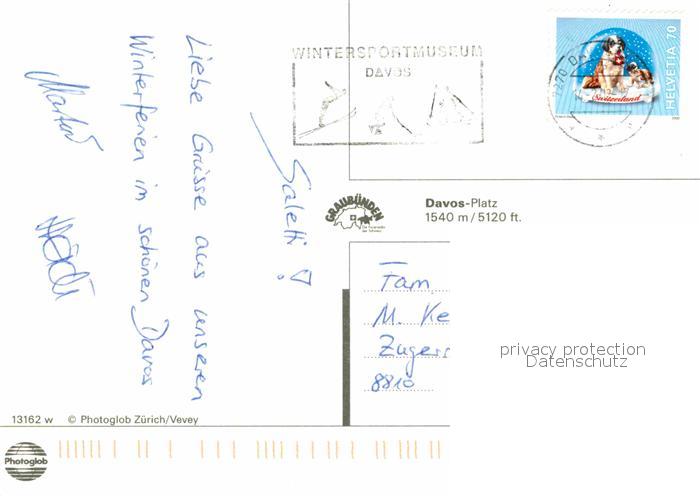 Saletti!
Liebe Grüsse aus unseren
Winterferien im schönen Davos
WINTERSPORTMUSEUM
DAVOS
HELVETIA 70
Switzerland
GRAUBÜNDEN
Davos-Platz
1540 m / 5120 ft.
Fam.
M. Ke
Zugers
8810
privacy protection
Datenschutz
13162 w © Photoglob Zürich/Vevey
Photoglob